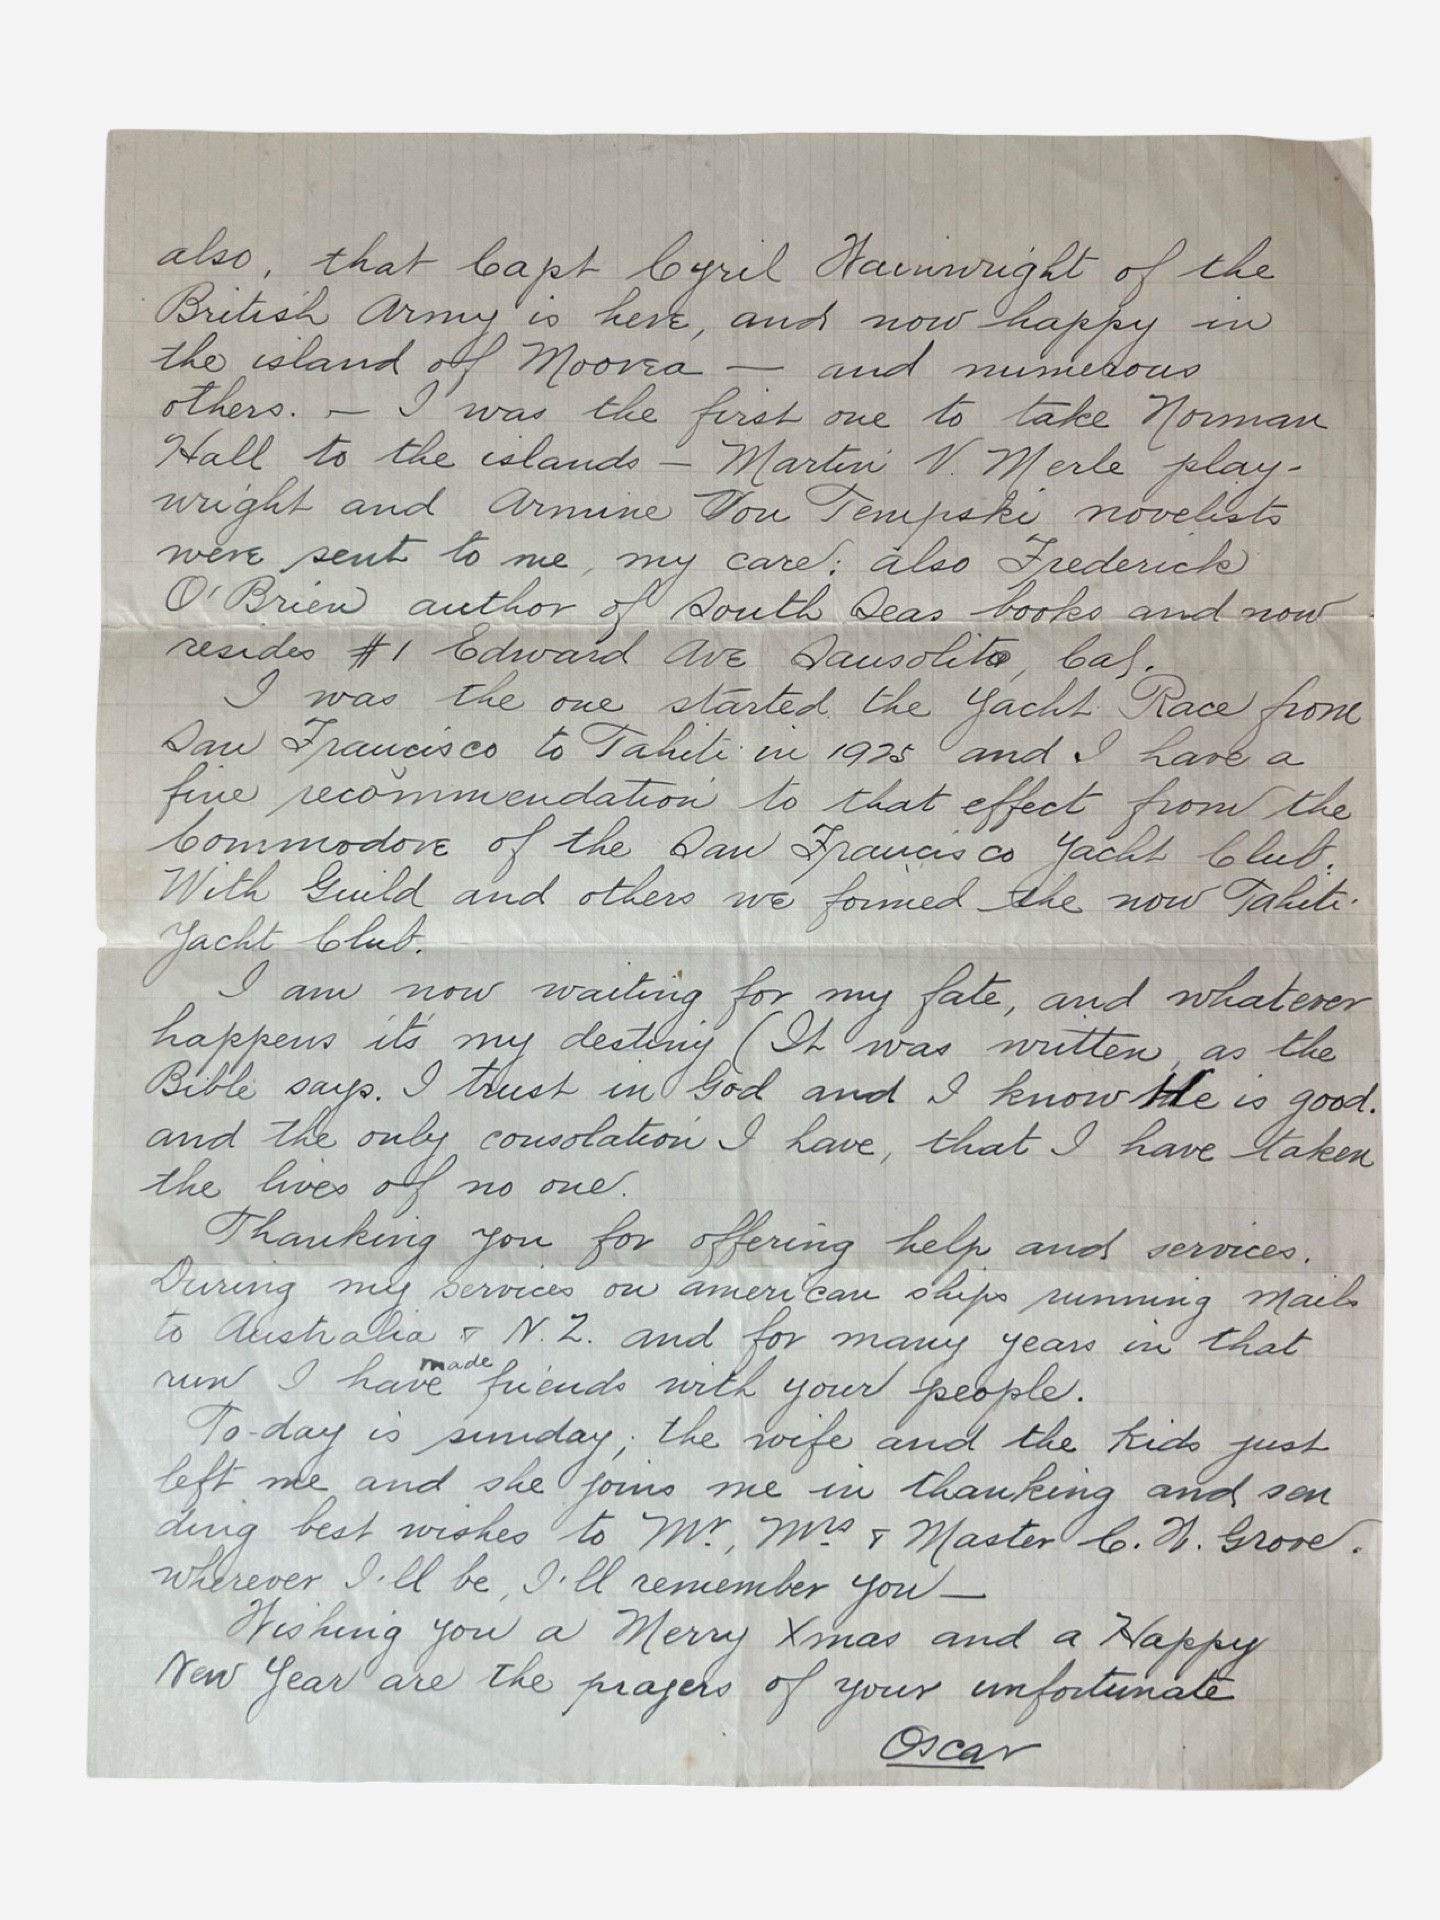 also, that Capt Cyril Wainwright of the
British Army is here, and now happy in
the island of Moorea — and numerous
others. — I was the first one to take Norman
Hall to the islands — Martin V. Merle play-
wright and Armine Von Tempski novelists
were sent to me, my care: also Frederick
O'Brien author of South Seas books and now
resides #1 Edward Ave Sausolito, Cal.
I was the one started the Yacht Race from
San Francisco to Tahiti in 1925 and I have a
fine recommendation to that effect from the
Commodore of the San Francisco Yacht Club.
With Guild and others we formed the now Tahiti
Yacht Club.
I am now waiting for my fate, and whatever
happens it's my destiny (It was written, as the
Bible says. I trust in God and I know He is good.
and the only consolation I have, that I have taken
the lives of no one.
Thanking you for offering help and services.
During my services on american ships running mails
to Australia & N.Z. and for many years in that
run I have made friends with your people.
To-day is sunday; the wife and the kids just
left me and she joins me in thanking and sen
ding best wishes to Mr., Mrs. & Master C. W. Grove.
wherever I'll be, I'll remember you —
Wishing you a Merry Xmas and a Happy
New Year are the prayers of your unfortunate
Oscar